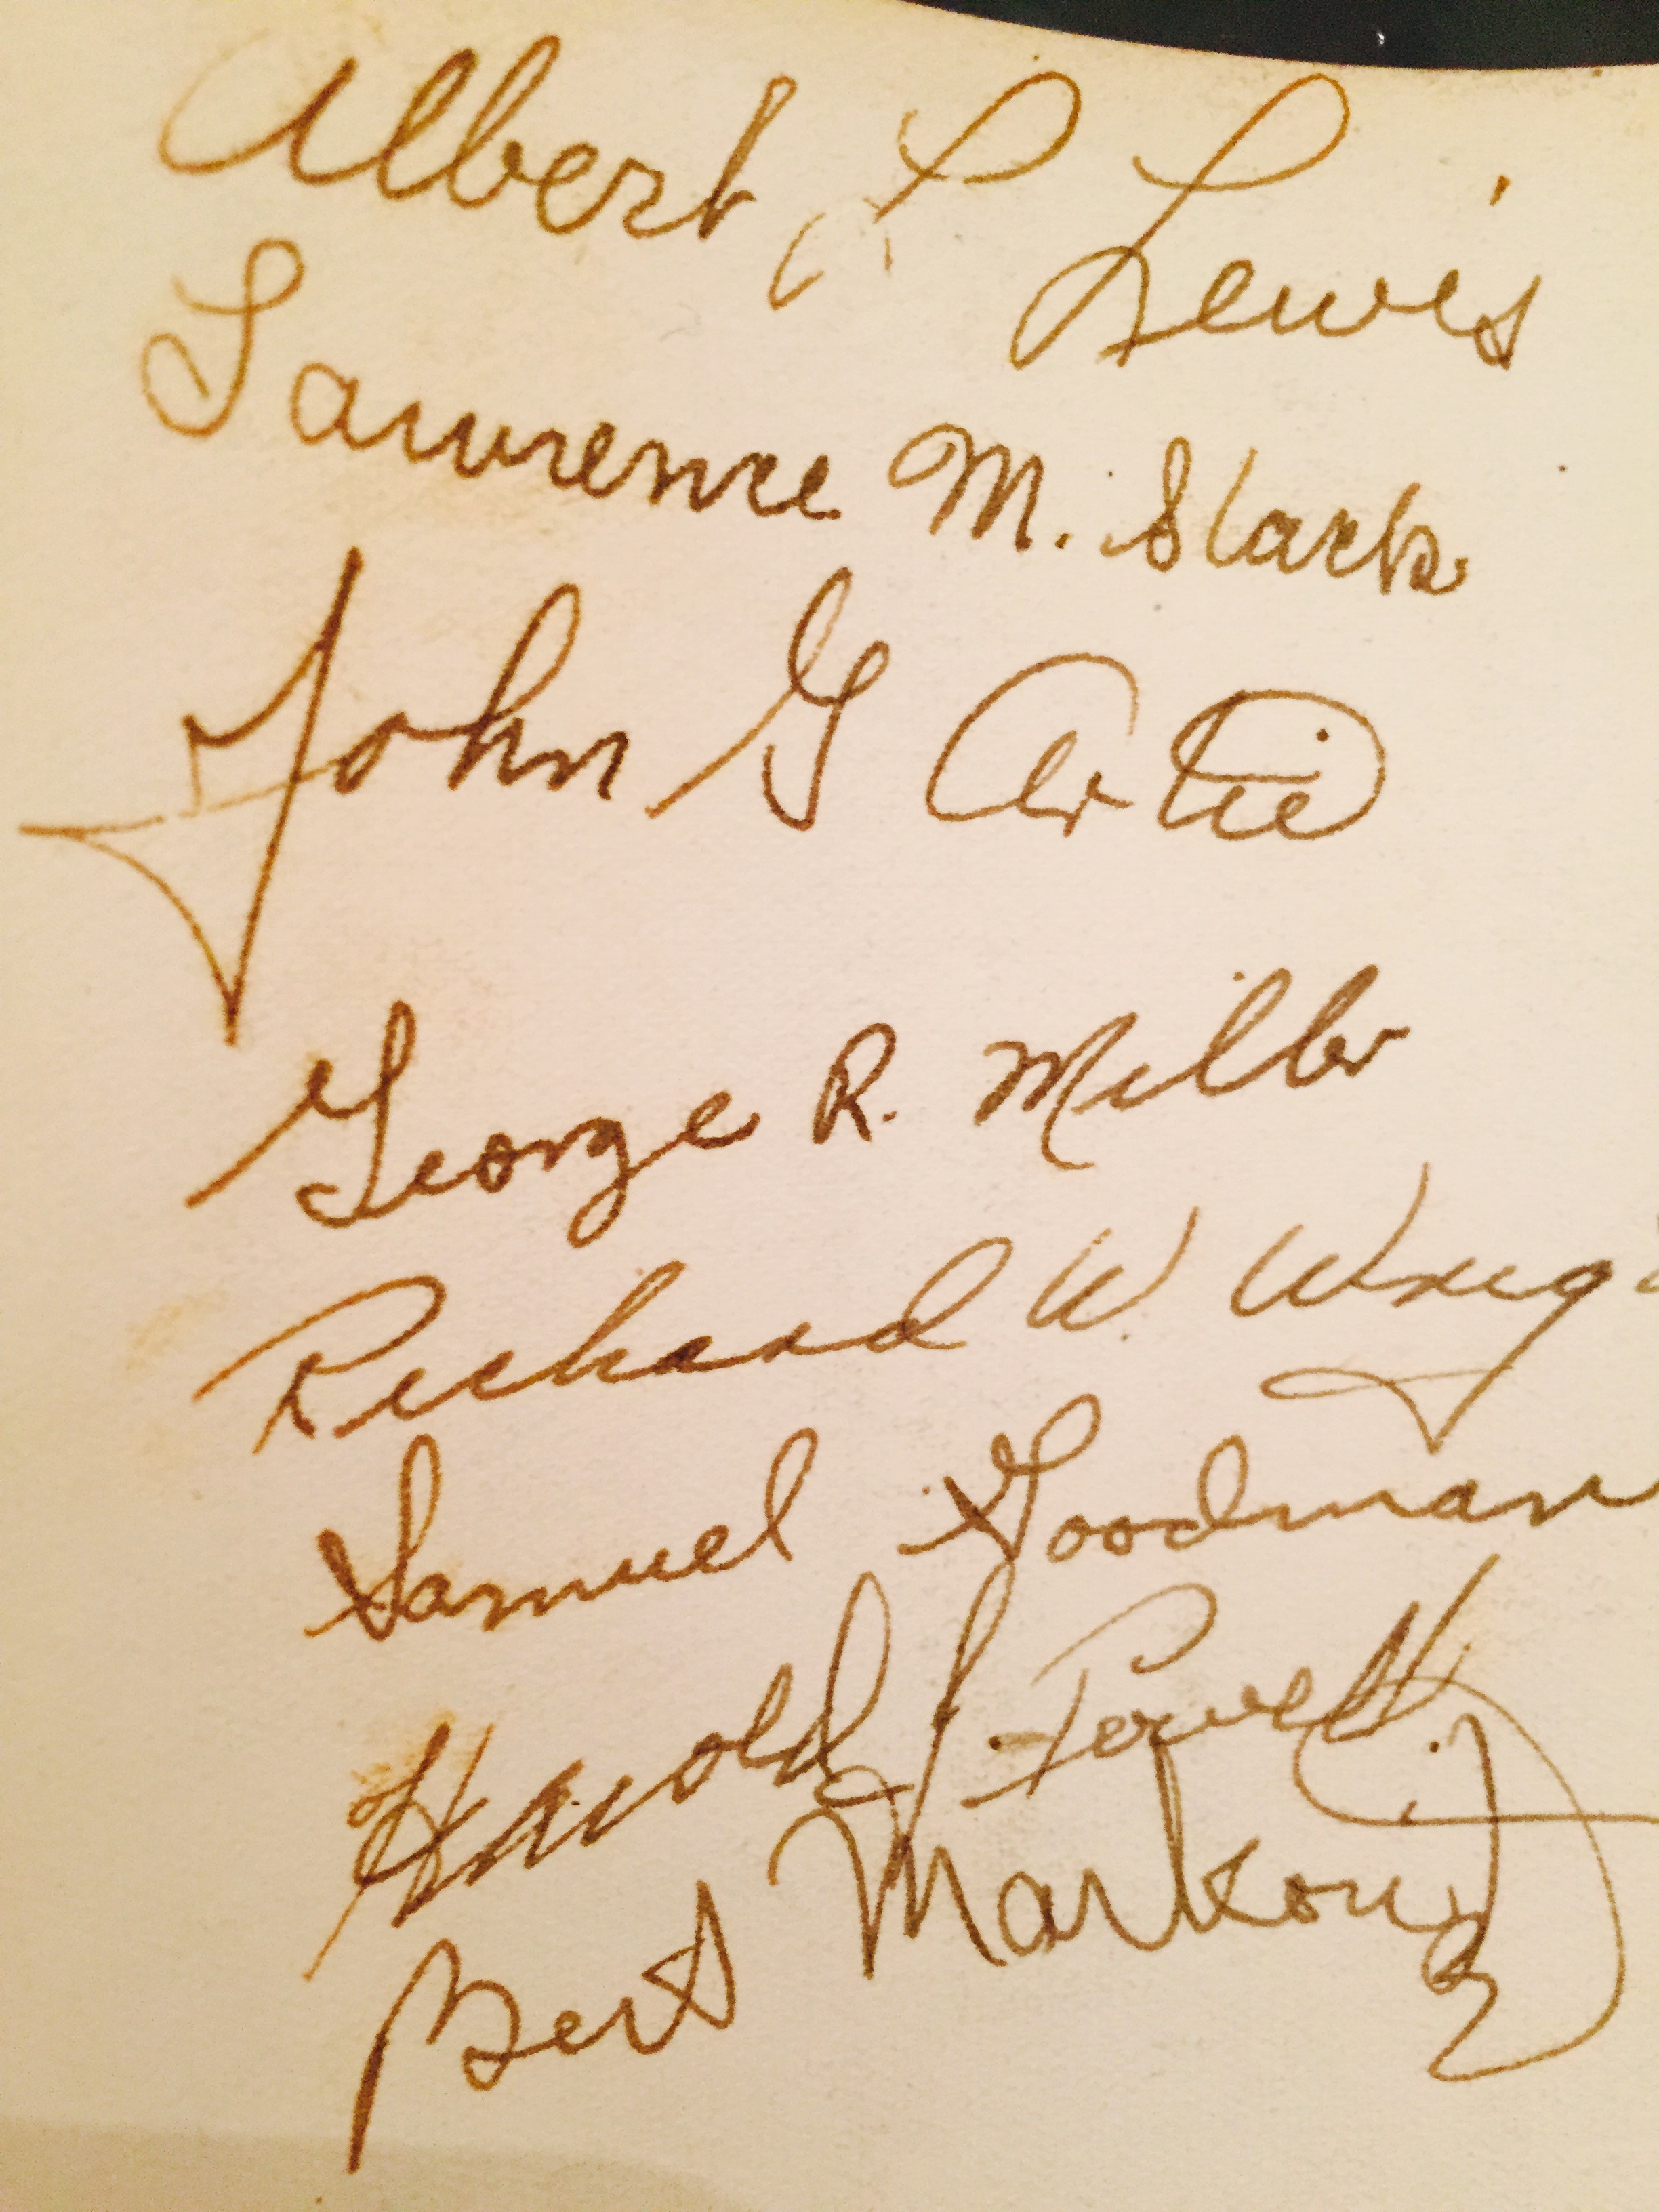 Albert L Lewis
Lawrence M. Stark
John G Artie
George R. Miller
Richard W. Wrig
Samuel Goodman
Harold J Powell
Bert Markowitz